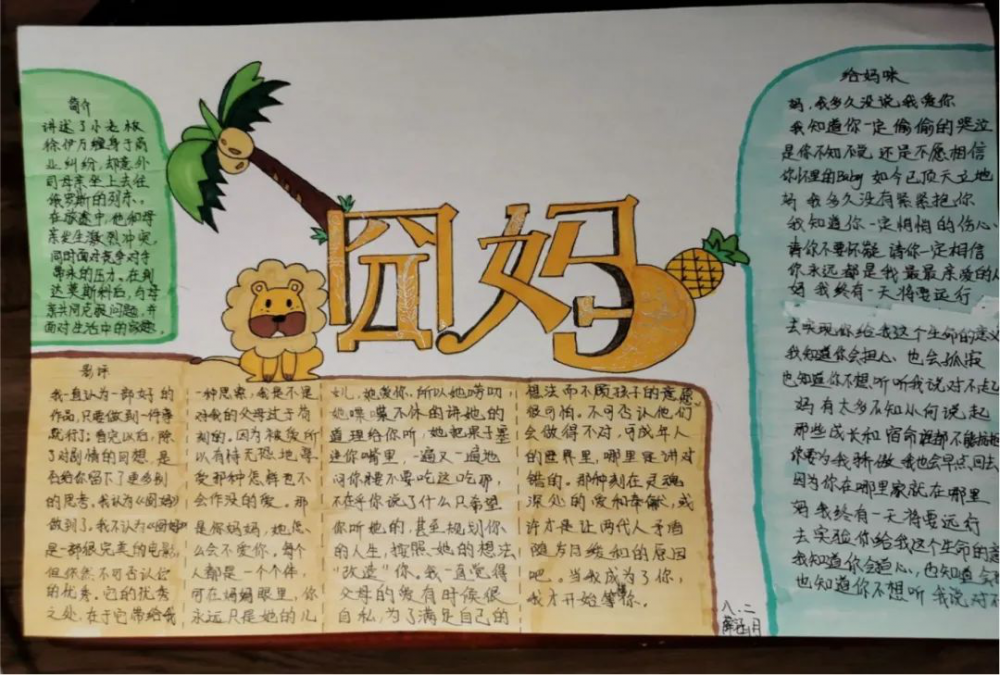 简介
讲述了小老板
徐伊万缠身于商
业纠纷,却意外
同母亲坐上去往
俄罗斯的列车。
在旅途中,他和母
亲发生激烈冲突,
同时面对竞争对手
带来的压力。在到
达莫斯科后,与母
亲共同克服问题,并
面对生活中的家庭。
囧妈
给妈咪
妈,我多久没说我爱你
我知道你一定偷偷的哭泣
是你不知不觉 还是不愿相信
你怀里的Baby 如今已顶天立地
妈 我多久没有紧紧抱你
我知道你一定悄悄的伤心
请你不要怀疑 请你一定相信
你永远都是我最最亲爱的
妈 我终有一天将要远行
去实现你给我这个生命的意义
我知道你会担心,也会孤寂
也知道你不想听听我说对不起
妈有太多不知从何说起
那些成长和宿命谁都不能
你要为我骄傲 我也会早点回去
因为你在哪里家就在哪里
妈 我终有一天将要远行
去实现你给我这个生命的意
我知道你会担心,也知道
也知道你不想听我说对不
影评
我一直认为一部好的
作品,只要做到一件事
就行了:看完以后,除
了对剧情的回想,是
否给你留下了更多别
的思考。我认为《囧妈》
做到了,我不认为《囧妈》
是一部很完美的电影,
但依然不可否认它
的优秀。它的优秀
之处,在于它带给我
一种思索,我是不是
对我的父母过于苛
刻的。因为被爱所
以有恃无恐地享
受那种怎样也不
会作没的爱。那
是你妈妈,她怎
么会不爱你。每个
人都是一个个体,
可在妈妈眼里,你
永远只是她的儿
儿,她爱你,所以她唠叨
她喋喋不休的讲她的
道理给你听,她把果子塞
进你嘴里,一遍又一遍地
问你要不要吃这吃那,
不在乎你说了什么只希望
你听她的,甚至规划你
的人生,按照她的想法
“改造”你。我一直觉得
父母的爱有时候很
自私,为了满足自己的
想法而不顾孩子的意愿
很可怕。不可否认他们
会做得不对,可成年人
的世界里,哪里匡讲对
错的。那种刻在灵魂
深处的爱和奉献,或
许才是让两代人矛盾
随岁月缓和的原因
吧。当我成为了你,
我才开始懂你。
八.二